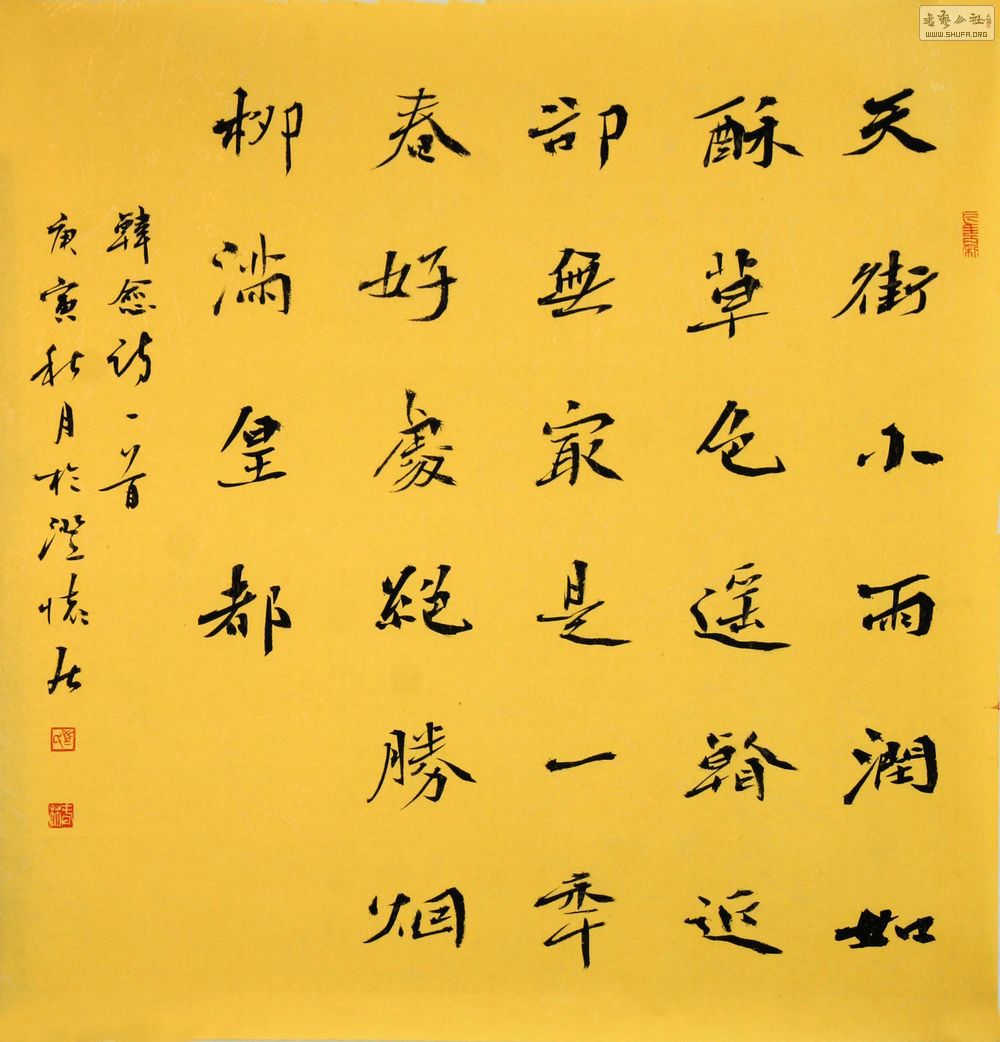 天街小雨潤如
酥草色遥看近
卻無最是一年
春好處絕勝烟
柳滿皇都
韓愈詩一首
庚寅秋月於澄懷居
書藝公社
WWW.SHUFA.ORG